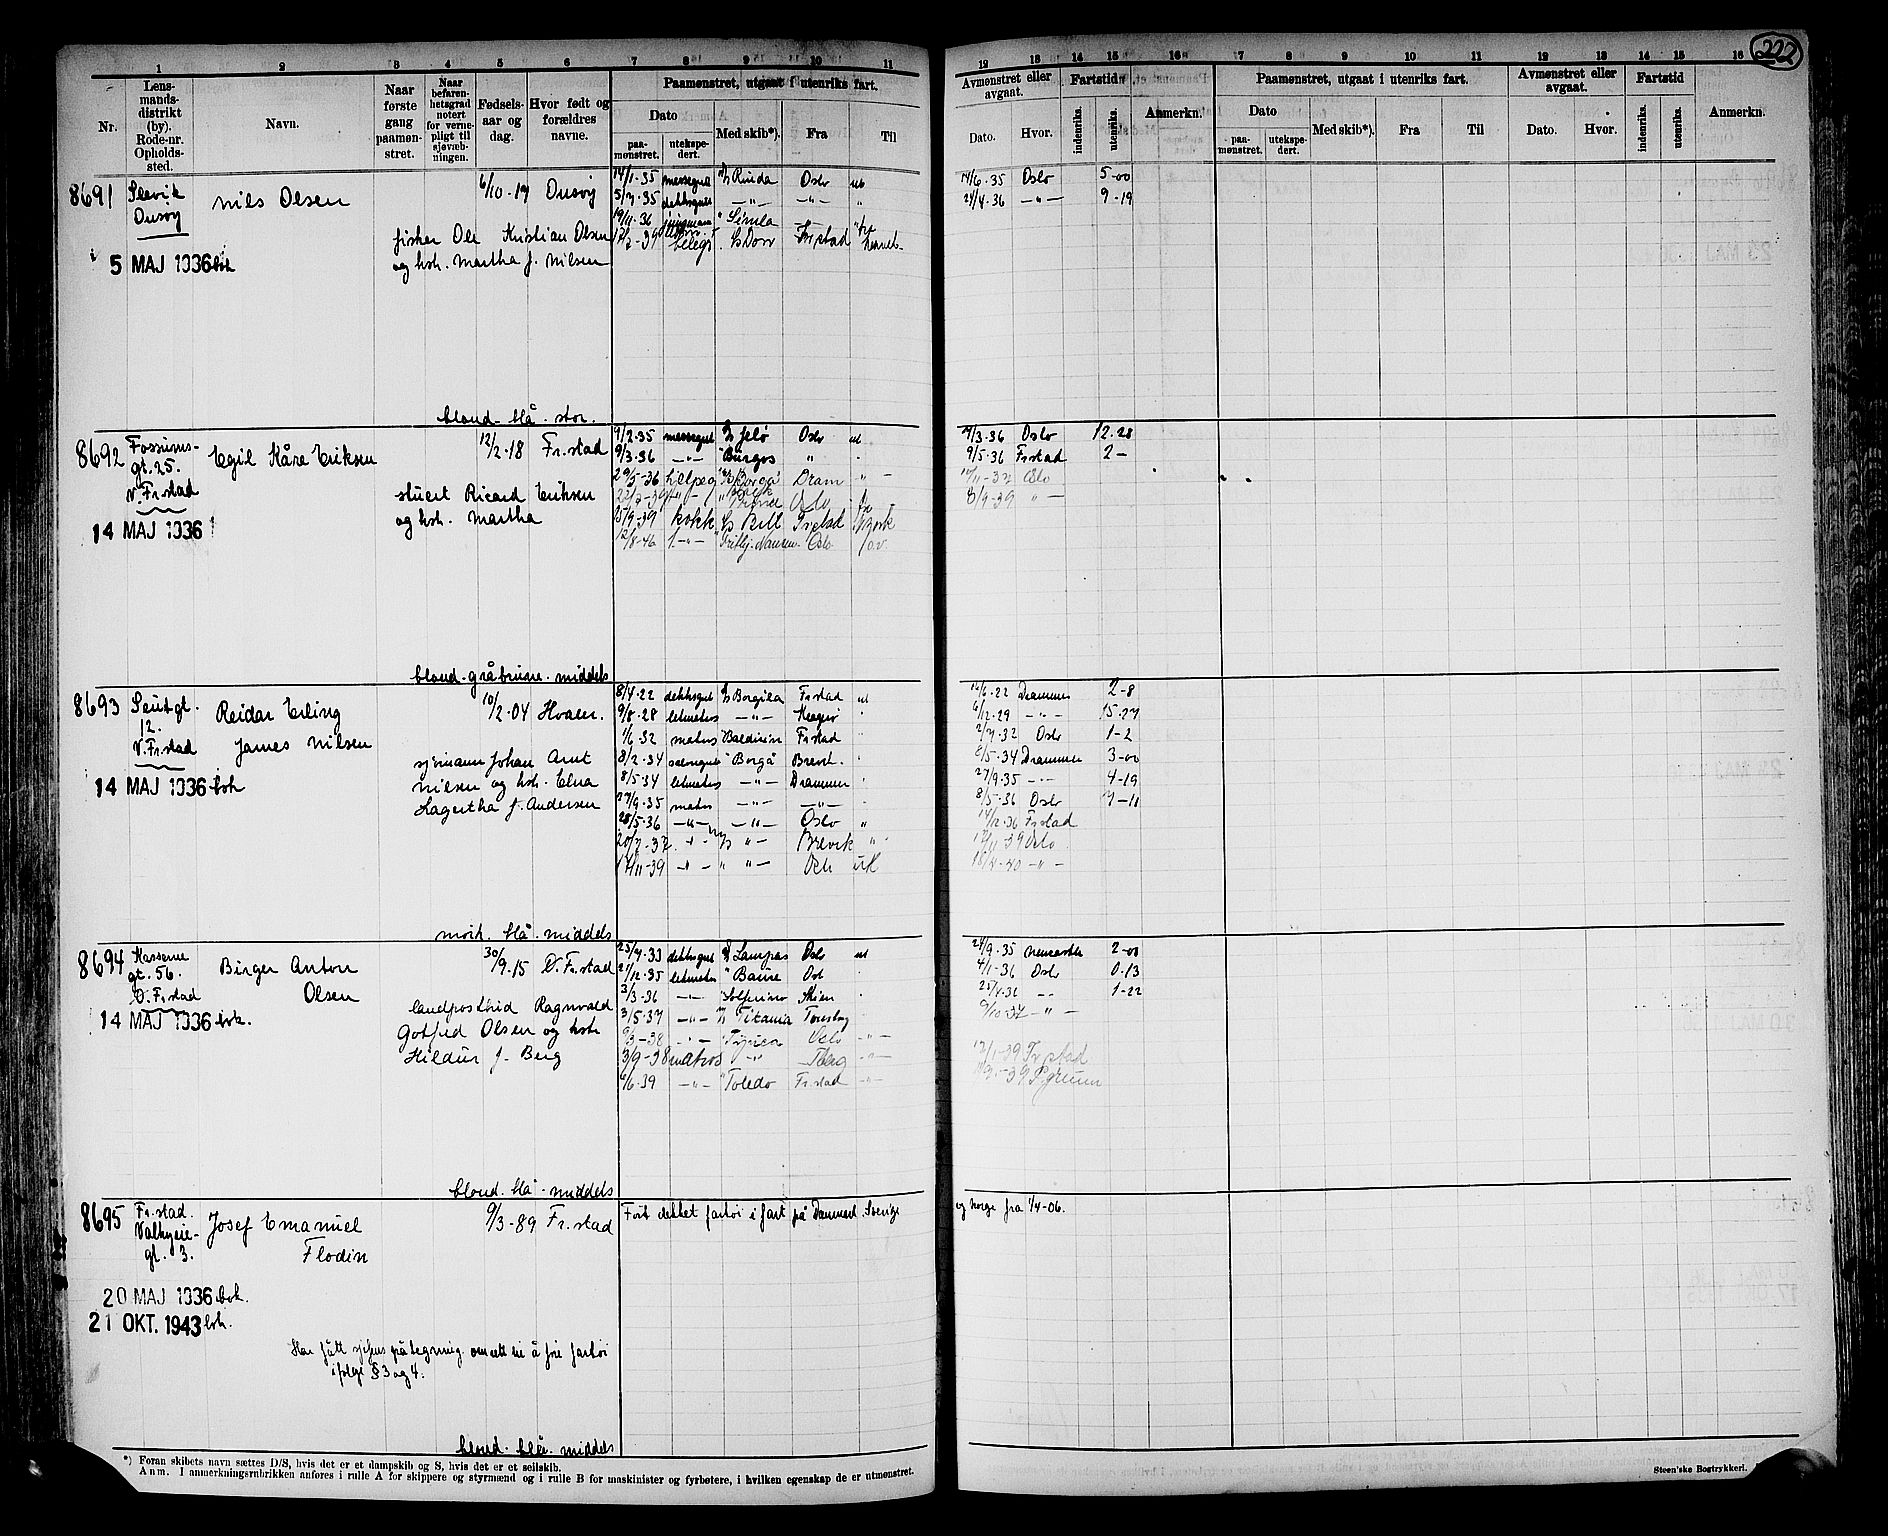 222
1 2 3 4 5 6 7 8 9 10 11
Nr.
Lensmandsdistrikt (by). Rode-nr. Opholdssted.
Navn.
Naar første gang paamønstret.
Naar befarenhetsgrad notert for vernepligt til sjøværbningen.
Fødselsaar og dag.
Hvor født og forældres navne.
Paamønstret, utgaat i utenriks fart.
Dato
paamønstret.
utekspedert.
Med skib*).
Fra
Til
12 13 14 15 16 7 8 9 10 11 12 13 14 15 16
Avmønstret eller avgaat.
Dato.
Hvor.
Fartstid
indenriks.
utenriks.
Anmerkn.
Paamønstret, utgaat i utenriks fart.
Dato
paamønstret.
utekspedert.
Med skib*).
Fra
Til
Avmønstret eller avgaat.
Dato.
Hvor.
Fartstid
indenriks.
utenriks.
Anmerkn.
8691 Slevik Onsøy
Nils Olsen
6/10-17 Onsøy
fisker Ole Kristian Olsen
og hst. Martha f. Nilsen
5 MAJ 1936 bok
14/1-35 messegut Rinda Oslo ut
5/7-35 dekksgut —"— —"— "
19/11-36 jungmann " Simla
Dovr Fr.stad
14/6-35 Oslo 5-00
24/4-36 —"— 9-19
blond - blå - stor.
8692 Fossumsgt. 25. V. Fr.stad
Egil Kåre Eriksen
12/2-18 Fr.stad
stuert Ricard Eriksen
og hst. Martha
14 MAJ 1936
9/2-35 messegut Jelø Oslo ut
9/3-36 —"— " Burgos "
29/5-36 Borgå Dram "
25/9-39 kokk Bill Fr.stad
12/8-46 Frithj. Nansen Oslo
9/3-36 Oslo 12-28
9/5-36 Fr.stad 2-
Oslo
8/9-39 "—
blond - gråbrune - middels
8693
12. V. Fr.stad
Reidar Erling
James Nilsen
10/2-04 Hvaler.
sjømann Johan Arnt
Nilsen og hst. Elna
Lagertha f. Andersen
14 MAJ 1936 bok
8/4-22 dekksgut Borgila Fr.stad ut
9/8-28 letmatros —"— Kragerø
1/6-32 matros Balduin Fr.stad
8/2-34 " Borgå Brevik
8/5-34 letmatros —"— Drammen
27/9-35 matros —"— —"—
28/5-36 —"— —"— Oslo "
20/7-37 " Brevik "
14/11-39 —"— " "— Oslo utl
16/6-22 Drammen 2-8
6/12-29 —"— 15-27
2/7-32 Oslo 1-2
8/5-34 Drammen 3-00
27/9-35 —"— 4-19
8/5-36 Oslo 7-11
14/12-36 Fr.stad
12/11-39 Oslo
18/4-40 —"—
mørk. blå - middels
8694 Kassernegt. 56. V. Fr.stad
Birger Anton
Olsen
30/9-15 V. Fr.stad
landpostbud Ragnvald
Gotfred Olsen og hst.
Hildur f. Berg
14 MAJ 1936 bok.
25/7-33 dekksgut Lampas Oslo ut
21/12-35 letmatros " Baune Oslo
3/3-36 —"— Solferino Skien
3/5-37 —"— Titania Tønsbg
9/3-38 —"— Oslo
3/9-38 matros —"— Tbrg
6/6-39 —"— " Toledo Fr.stad —"—
24/9-35 Newcastle 2-00
4/1-36 Oslo 0-13
25/4-36 —"— 1-22
9/10-37 —"—
12/1-39 Fr.stad
blond. blå - middels
8695 Fr.stad. Valkyriegt. 3.
Josef Emanuel
Flodin
9/3-89 Fr.stad
Ført dekket fartøi i fart på Danmark, Sverige
og Norge fra 1/4-06.
20 MAJ 1936 bok.
21 OKT. 1943 bok.
Har fått sjefens påtegning om rett til å føre fartøi
ifølge § 3 og 4.
blond - blå - middels
*) Foran skibets navn sættes D/S, hvis det er et dampskib og S, hvis det er et seilskib.
Anm. I anmerkningsrubrikken anføres i rulle A for skippere og styrmænd og i rulle B for maskinister og fyrbøtere, i hvilken egenskap de er utmønstret.
Steen'ske Bogtrykkeri.